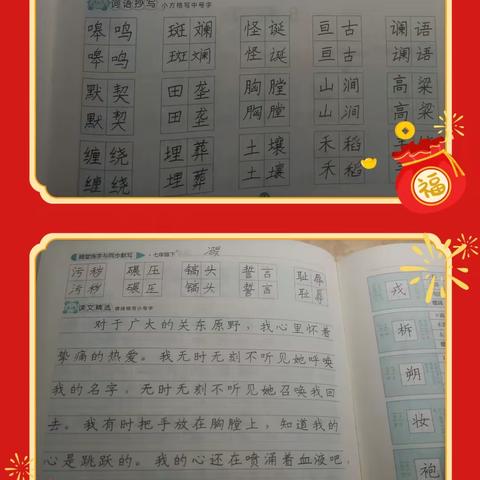 词语抄写 小方格写中号字
嗥鸣 斑斓 怪诞 亘古 谰语
嗥鸣 斑斓 怪诞 亘古 谰语
默契 田垄 胸膛 山涧 高粱
默契 田垄 胸膛 山涧 高粱
缠绕 埋葬 土壤 禾稻
缠绕 埋葬 土壤 禾稻
福
随堂练字与同步默写 七年级下
污秽 碾压 镐头 誓言 耻辱
污秽 碾压 镐头 誓言 耻辱
课文精选
对于广大的关东原野，我心里怀着
挚痛的热爱。我无时无刻不听见她呼唤
我的名字，无时无刻不听见她召唤我回
去。我有时把手放在胸膛上，知道我的
心是跳跃的。我的心还在喷涌着血液吧，
戎
柝
朔
妆
袍